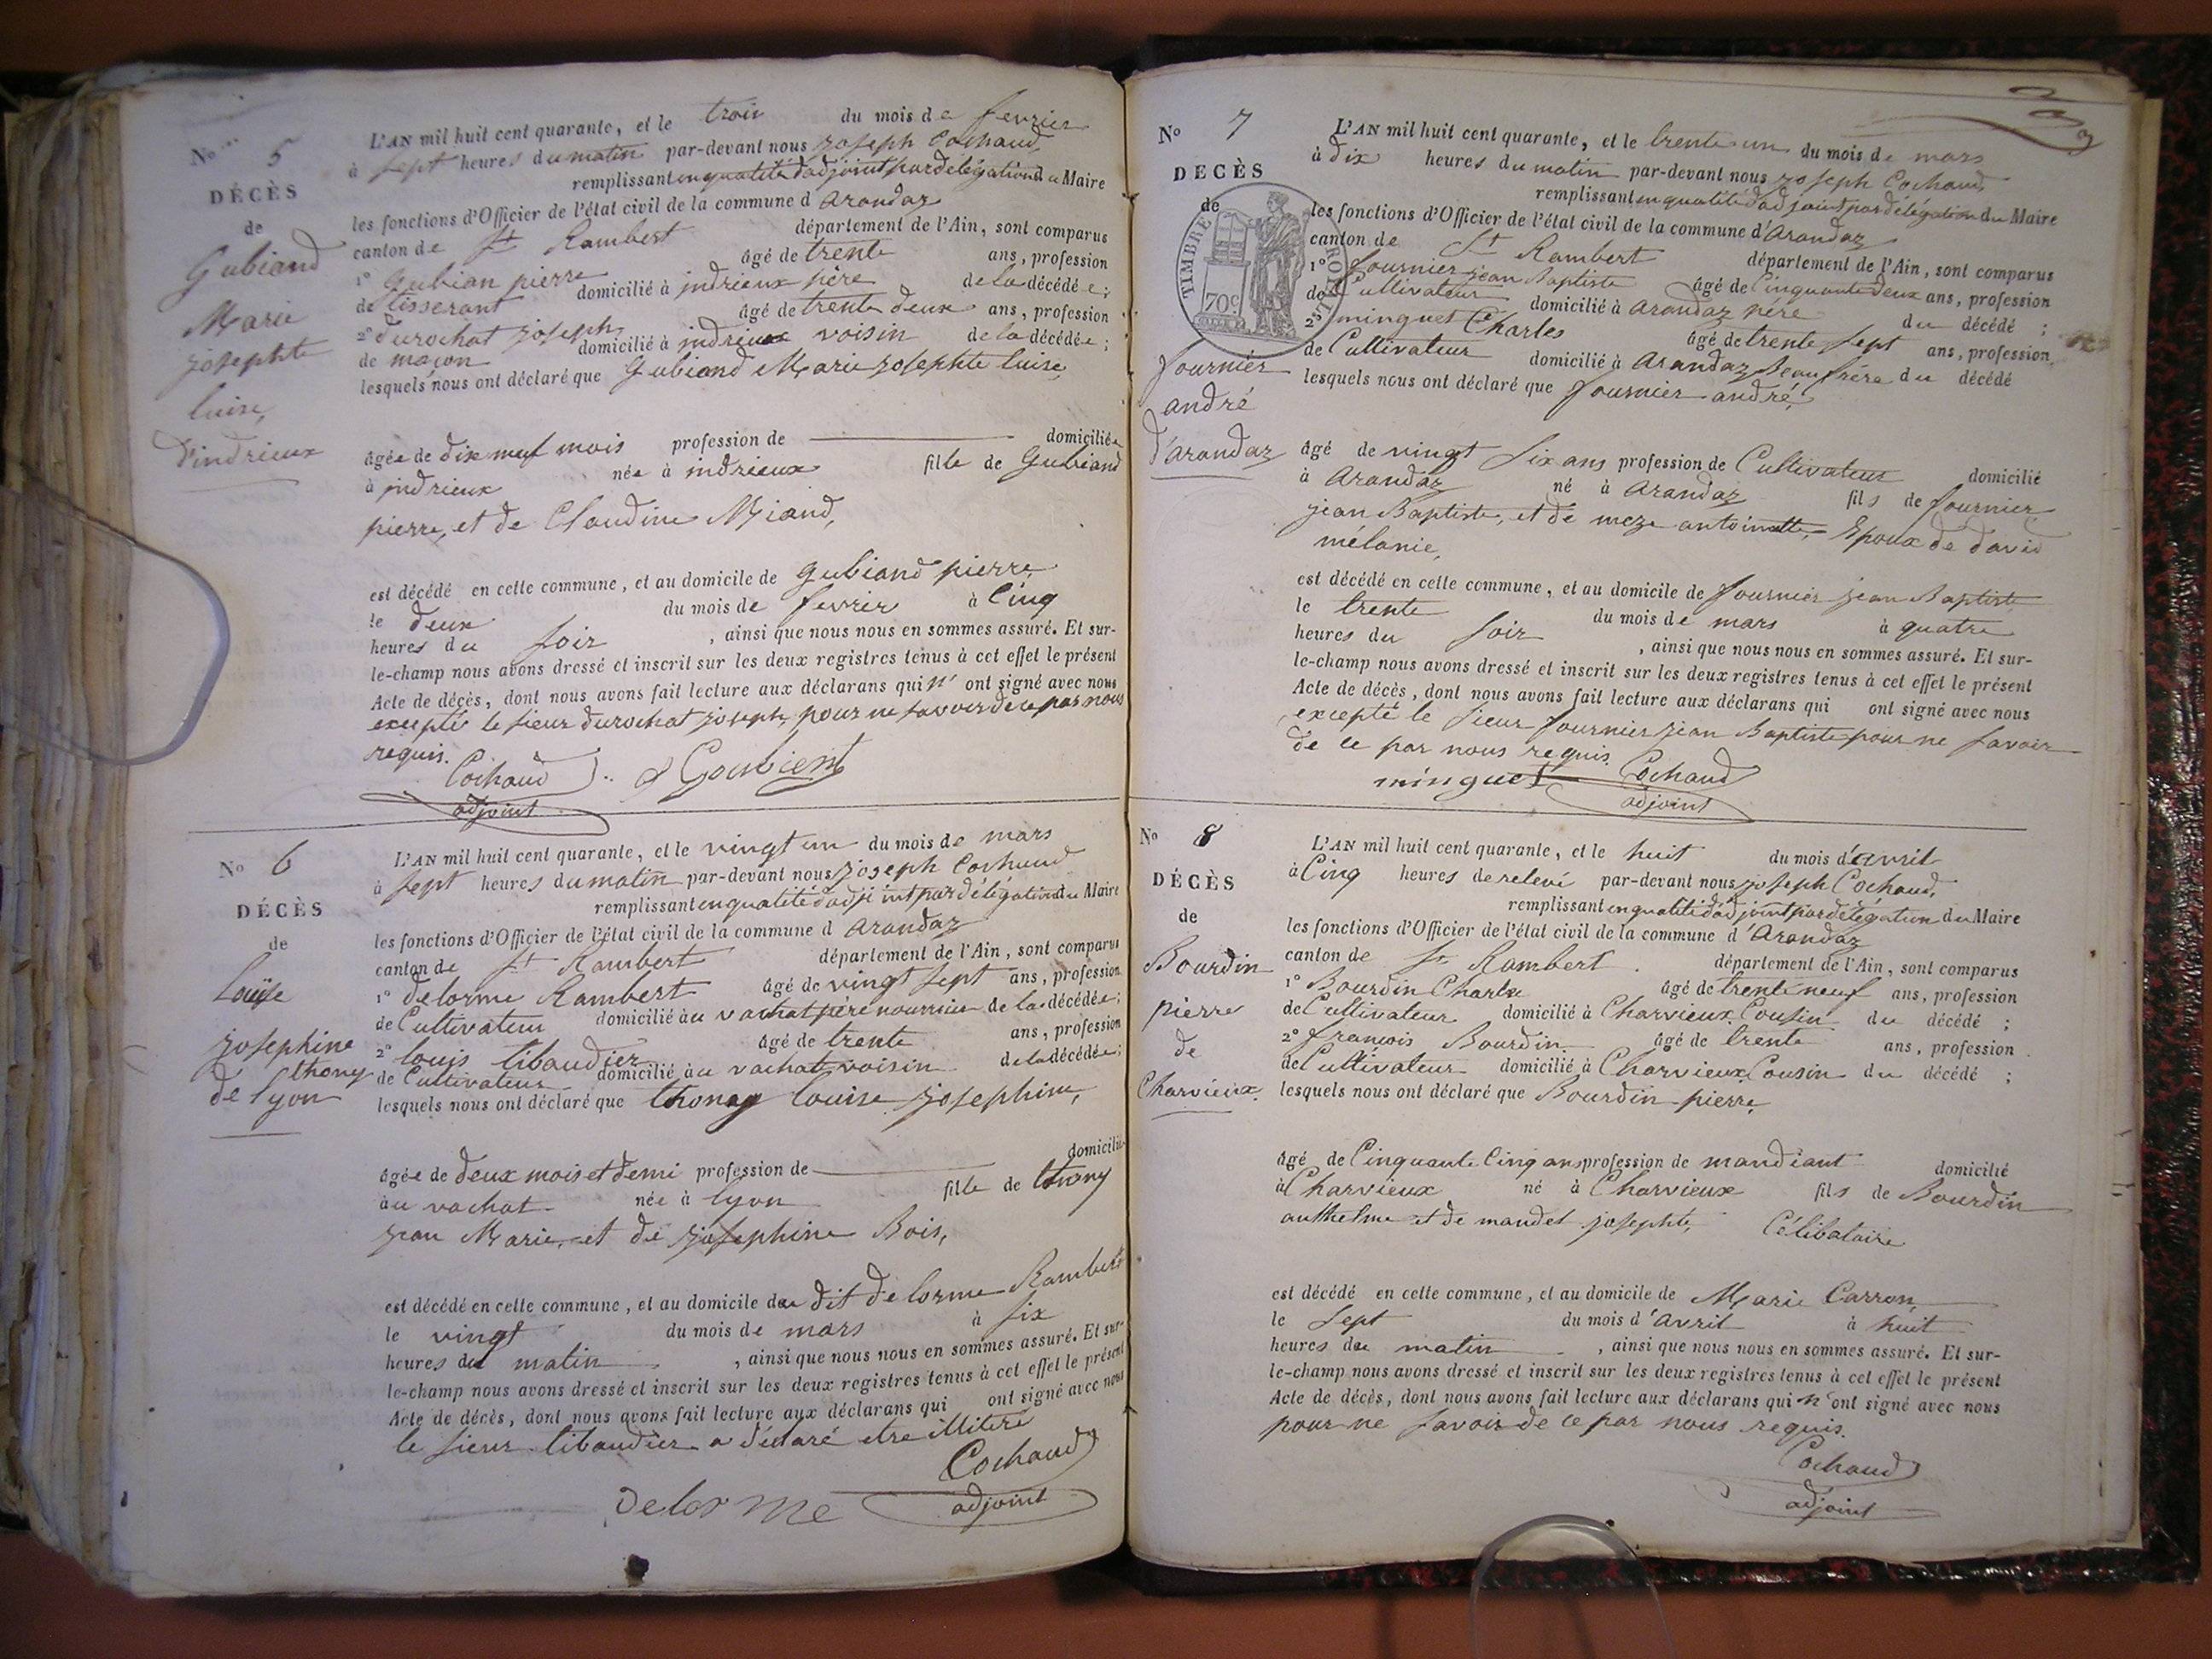 No 5
DÉCÈS
de
Gubiand
Marie
josephte
luise,
d'indrieux
L'AN mil huit cent quarante, et le trois du mois de fevrier
à sept heures du matin par-devant nous joseph Cochaud,
remplissant en qualité d'adjoint par délégation du Maire
les fonctions d'Officier de l'état civil de la commune d Arandaz
canton de St Rambert département de l'Ain, sont comparus
1º Gubian pierre âgé de trente ans, profession
de tisserant domicilié à indrieux père de la décédée;
2º durochat joseph âgé de trente deux ans, profession
de maçon domicilié à indrieux voisin de la décédée;
lesquels nous ont déclaré que Gubiand Marie josephte luise,
âgée de dix neuf mois profession de domiciliée
à indrieux née à indrieux fille de Gubiand
pierre, et de Claudine Miand,
est décédé en cette commune, et au domicile de gubiand pierre,
le deux du mois de fevrier à Cinq
heures du soir, ainsi que nous nous en sommes assuré. Et sur-
le-champ nous avons dressé et inscrit sur les deux registres tenus à cet effet le présent
Acte de décès, dont nous avons fait lecture aux déclarans qui n' ont signé avec nous
excepté le sieur durochat joseph, pour ne savoir de ce par nous
requis.
Cochaud
adjoint
No 6
DÉCÈS
de
Louise
josephine
thony
de lyon
L'AN mil huit cent quarante, et le vingt un du mois de mars
à sept heures du matin par-devant nous joseph Cochaud
remplissant en qualité d'adjoint par délégation du Maire
les fonctions d'Officier de l'état civil de la commune d Arandaz
canton de St Rambert département de l'Ain, sont comparus
1º delorme Rambert âgé de vingt sept ans, profession
de Cultivateur domicilié au vachat père nourricier de la décédée;
2º louis tibaudier âgé de trente ans, profession
de Cultivateur domicilié au vachat voisin de la décédée;
lesquels nous ont déclaré que thonay louise josephine,
âgée de deux mois et demi profession de domicilié
au vachat née à lyon fille de thony
jean Marie, et de josephine Bois,
est décédé en cette commune, et au domicile du dit delorme Rambert
le vingt du mois de mars à six
heures du matin, ainsi que nous nous en sommes assuré. Et sur-
le-champ nous avons dressé et inscrit sur les deux registres tenus à cet effet le présent
Acte de décès, dont nous avons fait lecture aux déclarans qui ont signé avec nous
le sieur tibaudier a déclaré etre illiteré
Cochaud
Delorme adjoint
No 7
DÉCÈS
de
TIMBRE ROYAL
70 c
fournier
andré
d'arandaz
L'AN mil huit cent quarante, et le trente un du mois de mars
à dix heures du matin par-devant nous joseph Cochaud,
remplissant en qualité d'adjoint par délégation du Maire
les fonctions d'Officier de l'état civil de la commune d'Arandaz
canton de St Rambert département de l'Ain, sont comparus
1º fournier jean Baptiste âgé de Cinquante deux ans, profession
de Cultivateur domicilié à arandaz père du décédé;
2º minguet Charles âgé de trente sept ans, profession
de Cultivateur domicilié à Arandaz beau frère du décédé
lesquels nous ont déclaré que fournier andré,
âgé de vingt six ans profession de Cultivateur domicilié
à Arandaz né à Arandaz fils de fournier
jean Baptiste, et de meze antoinette, Epoux de david
mélanie,
est décédé en cette commune, et au domicile de fournier jean Baptiste
le trente du mois de mars à quatre
heures du soir, ainsi que nous nous en sommes assuré. Et sur-
le-champ nous avons dressé et inscrit sur les deux registres tenus à cet effet le présent
Acte de décès, dont nous avons fait lecture aux déclarans qui ont signé avec nous
excepté le sieur fournier jean Baptiste pour ne savoir
de ce par nous requis.
minguet Cochaud
adjoint
No 8
DÉCÈS
de
Bourdin
pierre
de
Charvieux.
L'AN mil huit cent quarante, et le huit du mois d'avril
à Cinq heures de relevé par-devant nous joseph Cochaud,
remplissant en qualité d'adjoint par délégation du Maire
les fonctions d'Officier de l'état civil de la commune d'Arandaz
canton de St Rambert département de l'Ain, sont comparus
1º Bourdin Charles âgé de trente neuf ans, profession
de Cultivateur domicilié à Charvieux Cousin du décédé;
2º francois Bourdin âgé de trente ans, profession
de Cultivateur domicilié à Charvieux Cousin du décédé;
lesquels nous ont déclaré que Bourdin pierre,
âgé de Cinquante Cinq ans profession de mandiant domicilié
à Charvieux né à Charvieux fils de Bourdin
anthelme et de mandet josephte, Célibataire
est décédé en cette commune, et au domicile de Marie Carron,
le sept du mois d'avril à huit
heures du matin, ainsi que nous nous en sommes assuré. Et sur-
le-champ nous avons dressé et inscrit sur les deux registres tenus à cet effet le présent
Acte de décès, dont nous avons fait lecture aux déclarans qui n'ont signé avec nous
pour ne savoir de ce par nous requis.
Cochaud
adjoint